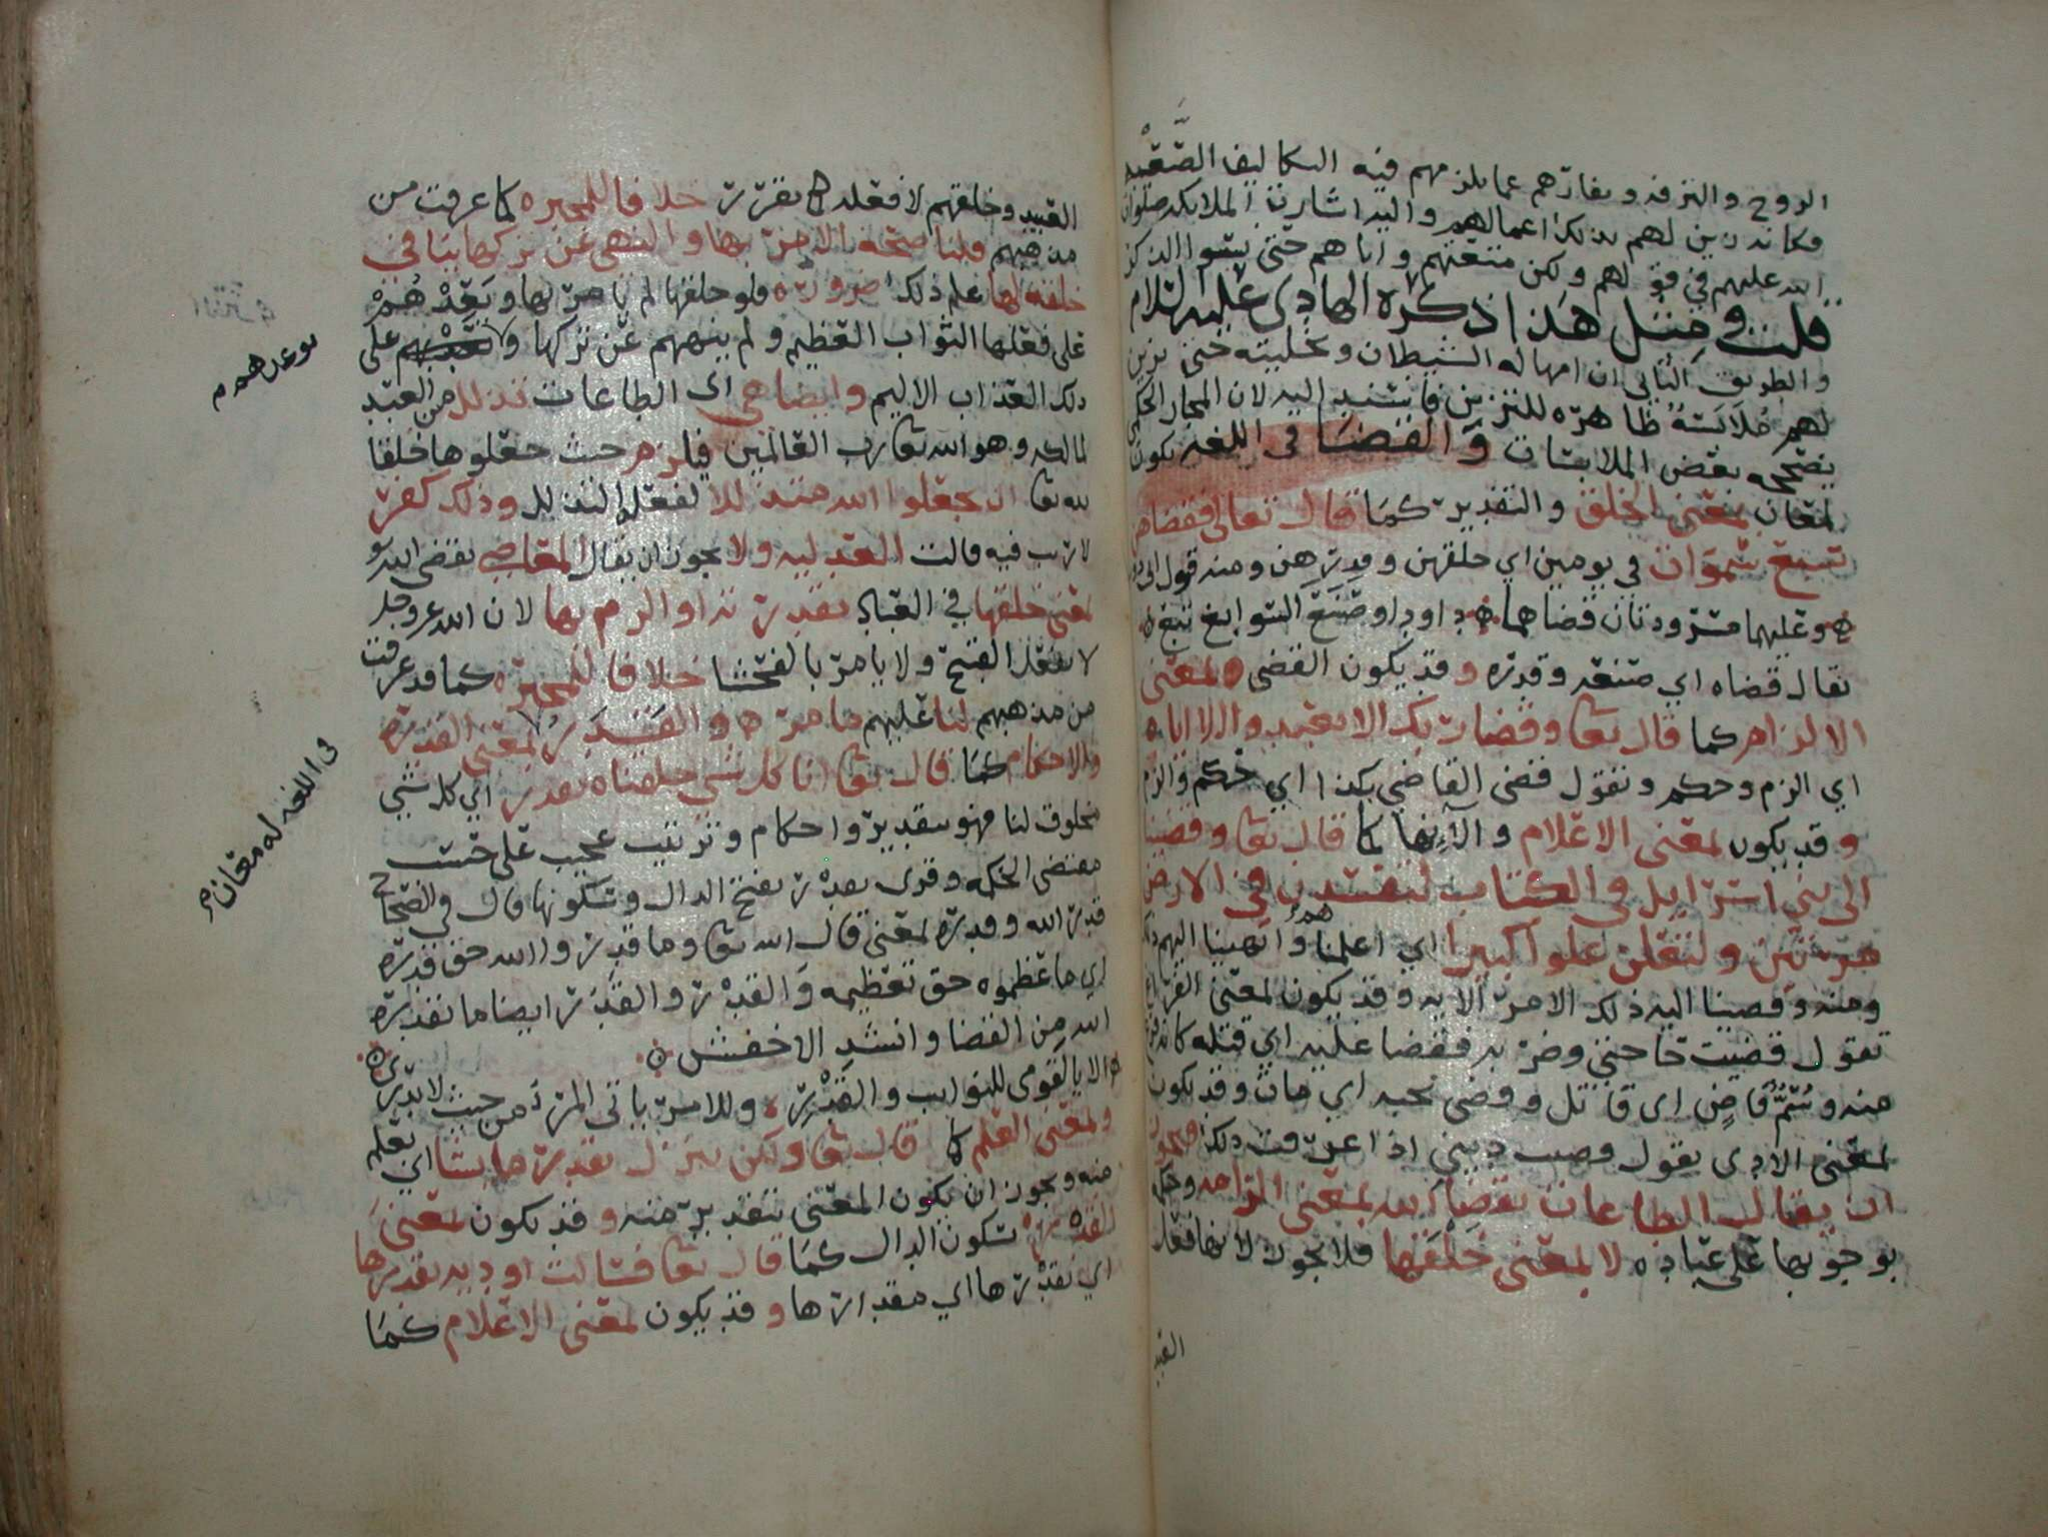 الروح والترفه ونفارهم عما يلزمهم فيه التكاليف الصعبه
فكانه زين لهم بذلك اعمالهم واليه اشارت الملائكه صلوات
الله عليهم في قولهم ولكن متعتهم واباهم حتى نسوا الذكر
قلت ومثل هذا ذكره الهادي عليه السلام
والطريق الثاني ان امهاله الشيطان وتخليته حتى يزين
لهم ملابسة ظاهره للتزيين فاسند اليه لان المجاز الحكمي
يصححه بعض الملابسات والقضا في اللغه يكون
لمعان بمعنى الخلق والتقدير كما قال تعالى فقضاهن
سبع سموات في يومين اي خلقهن وقدرهن ومنه قول ابي
وعليهما مسرودتان قضاهما داود او صنع السوابغ تبع
يقال قضاه اي صنعه وقدره وقد يكون القضى بمعنى
الالزام كما قال تعا وقضا ربك الا تعبدوا الا اياه
اي الزم وحكم وتقول قضى القاضي بكذا اي حكم والزم
وقد يكون بمعنى الاعلام والانها كما قال تعا وقضينا
الى بني اسرائيل في الكتاب لتفسدن في الارض
مرتين ولتعلن علوا كبيرا اي اعلمناهم وانهينا اليهم ذلك
ومنه وقضينا اليه ذلك الامر الايه وقد يكون بمعنى الفراغ
تقول قضيت حاجتي وضربه فقضا عليه اي قتله كانه فرغ
منه وسم قاض اي قاتل وقضى نحبه اي مات وقد يكون
بمعنى الادى تقول قضيت ديني اذا عرفت ذلك فيجوز
ان يقال الطاعات بقضاء الله بمعنى الزامه وحكمه
بوجوبها على عباده لا بمعنى خلقها فلا يجوز لانها فعل
العبيد
العبيد وخلقهم لا فعله لما تقرر خلافا للمجبره لما عرفت من
مذهبهم قلنا صحة الامر بها والنهي عن تركها ينافي
خلقه لها علم ذلك ضروره فلو خلقها لم يامر بها ويعدهم
على فعلها الثواب العظيم ولم ينههم عن تركها ولا على
ذلك العذاب الاليم وايضا هي اي الطاعات تذلل من العبد
لمالكه وهو الله تعا رب العالمين فيلزم حيث جعلوها خلقا
لله تعا ان يجعلوا الله متذللا لفعله التذلل وذلك كفر
لا ريب فيه قالت العدليه ولا يجوز ان يقال المعاصي بقضى الله
بمعنى خلقها في العباد بقدرته او الزم بها لان الله عز وجل
لا يفعل القبيح ولا يامر بالفحشا خلافا للمجبره كما قد عرفت
من مذهبهم لنا عليهم ما مر والقدر بمعنى القدره
والاحكام كما قال تعا انا كل شي خلقناه بقدر اي كل شي
مخلوق لنا فهو بتقدير واحكام وترتيب عجيب على حسب
مقتضى الحكمه وقرى بقدر بفتح الدال وسكونها قال في الصحاح
قدر الله وقدره بمعنى قال الله تعا وما قدروا الله حق قدره
اي ما عظموه حق تعظيمه والقدر والقدر ايضا ما نقدره
الله من القضا وانشد الاخفش
الا يا لقومي للنوايب والقدر وللامر ياتي المرء من حيث لا يدري
وبمعنى العلم كما قال تعا ولكن ينزل بقدر ما يشا اي بعلم
منه ويجوز ان يكون المعنى بتقدير منه وقد يكون بمعنى
القدر بسكون الدال كما قال تعا فسالت اوديه بقدرها
اي بقدرها اي مقدارها وقد يكون بمعنى الاعلام كما
توعدهم
في اللغه له معان